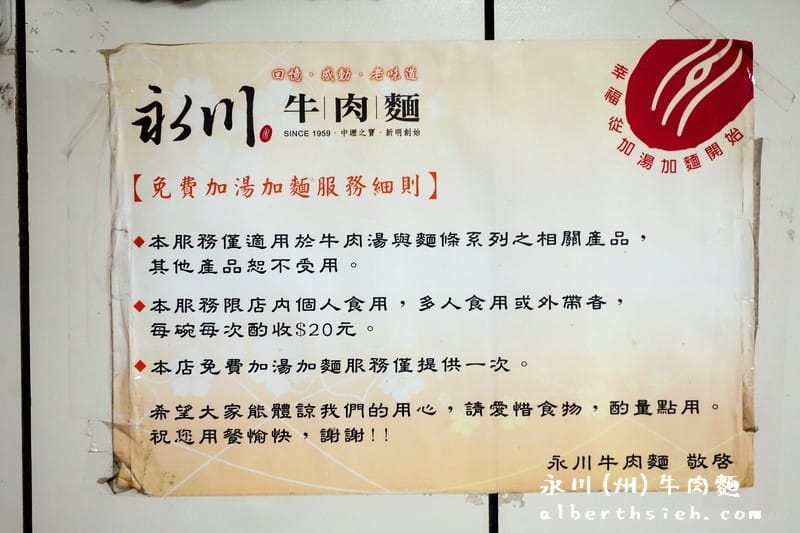 回憶・感動・老味道
永川 牛|肉|麵
SINCE 1959・中壢之寶・新明創始
幸福從加湯加麵開始
【免費加湯加麵服務細則】
◆本服務僅適用於牛肉湯與麵條系列之相關產品，
其他產品恕不受用。
◆本服務限店內個人食用，多人食用或外帶者，
每碗每次酌收$20元。
◆本店免費加湯加麵服務僅提供一次。
希望大家能體諒我們的用心，請愛惜食物，酌量點用。
祝您用餐愉快，謝謝!!
永川牛肉麵 敬啓
永川(州)牛肉麵
alberthsieh.com